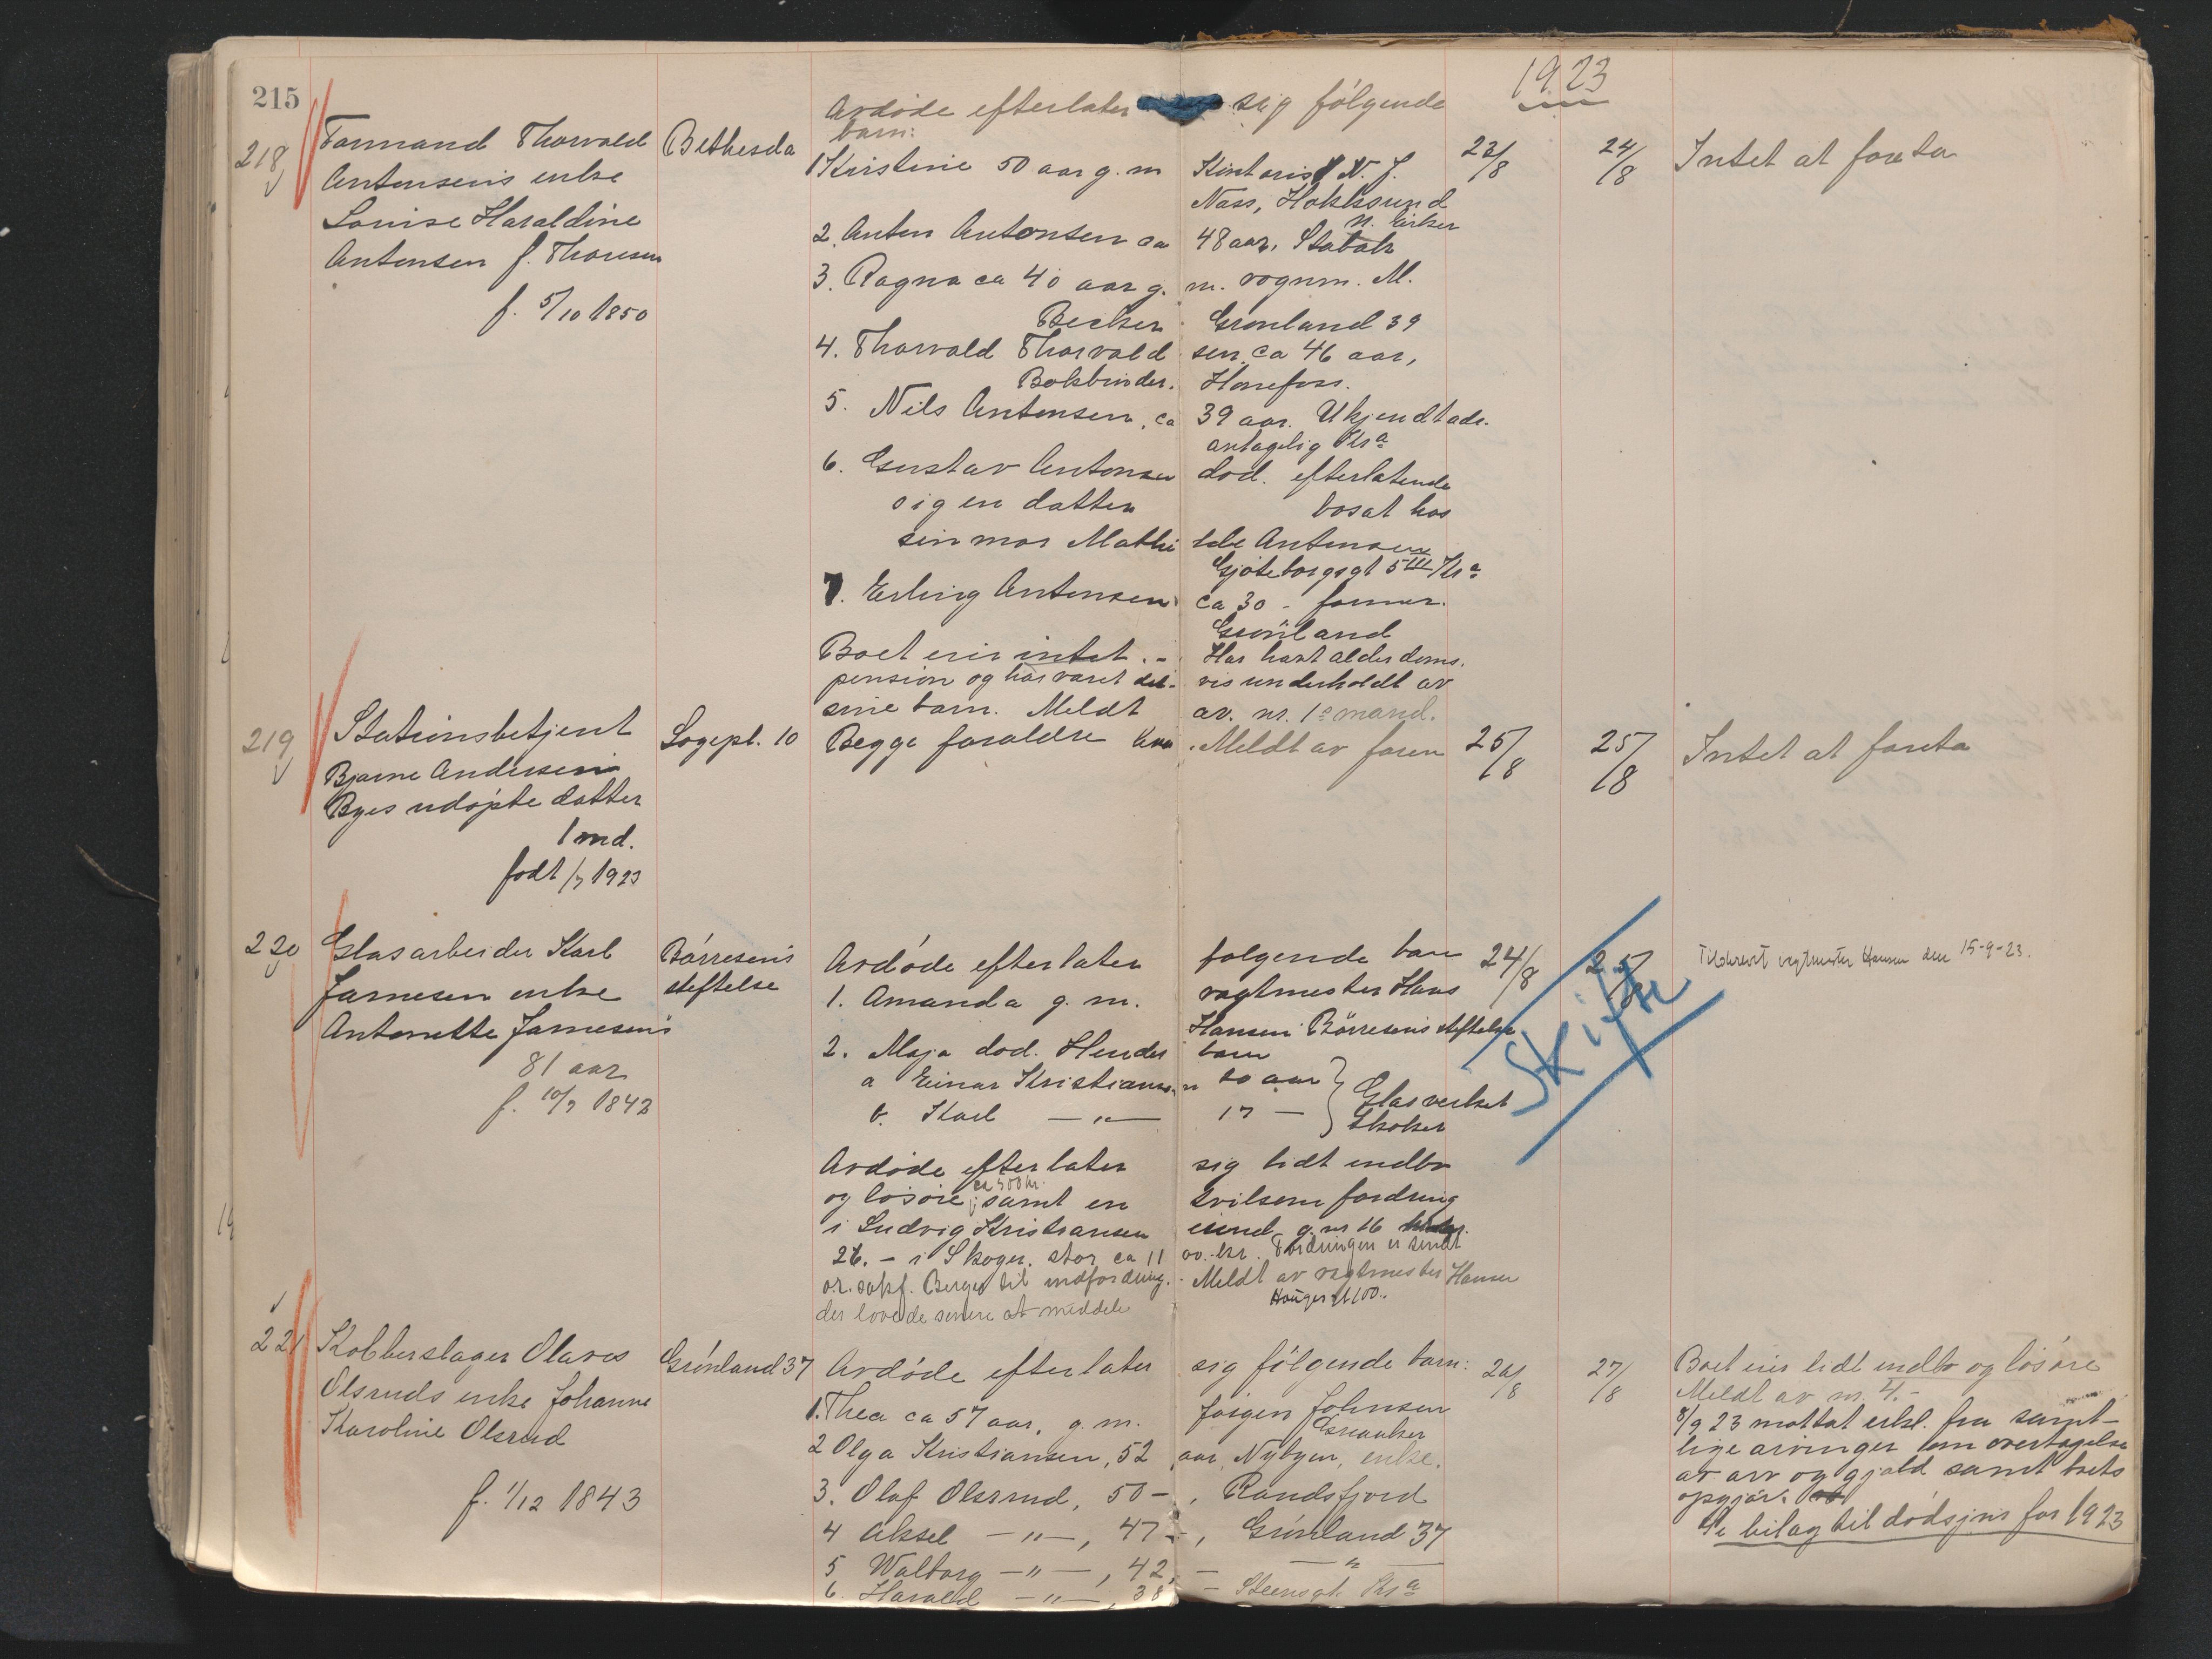 215
1923
218
Formand Thorvald
Antonsens enke
Louise Haraldine
Antonsen f. Thoresen
f. 5/10 1850
Bethesda
Avdøde efterlater sig følgende
barn:
1 Kirstine 50 aar g. m Kontorist N. J.
Næss, Hokksund
N. Eiker
2. Anton Antonsen ca 48 aar, Stabæk
3. Ragna ca 40 aar g. m. vognm. M.
Becker Grønland 39
4. Thorvald Thorvaldsen ca 46 aar,
Bokbinder. Hønefoss.
5. Nils Antonsen, ca 39 aar. Ukjendt adr.
antagelig Kra
6. Gustav Antonsen død. efterlatende
sig en datter bosat hos
sin mor Mathilde Antonsen
Gjøteborggt 5 III Kra
7. Erling Antonsen ca 30 - former.
Grønland
Boet eier intet. - Har hat alderdoms.
pension og har været delvis underholdt av
sine barn. Meldt av. nr. 1s mand.
23/8
24/8
Intet at foreta
219
Stationsbetjent
Bjarne Andersen
Byes udøpte datter
1 md.
født /7 1923
Løgepl. 10
Begge forældre leve. Meldt av faren
25/8
25/8
Intet at foreta
220
Glasarbeider Karl
Jamesen enke
Antonette Jamesens
81 aar
f. 10/7 1842
Børresens
stiftelse
Avdøde efterlater følgende barn
1. Amanda g. m. vagtmester Hans
Hansen Børresens stiftelse
2. Maja død. Hendes barn
a Einar Kristiansen 20 aar
b. Karl — " — 17 —
Glasverket
Skoger
Avdøde efterlater sig lidt indbo
og løsøre, samt en tvilsom fordring
ca 300 kr.
i Ludvig Kristiansen eiend. g. nr 16
26. - i Skoger. stor ca 1100.- kr. Fordringen er sendt
o.r. sakf. Berger til indfordring. - Meldt av vagtmester Hansen
der lovede senere at meddele
Haugesgt 100..
24/8
25/8
Skifte
Tilskrevt vagtmester Hansen den 15-9-23.
221
Kobberslager Olaves
Olsruds enke Johanne
Karoline Olsrud
f. 1/12 1843
Grønland 37
Avdøde efterlater sig følgende barn:
1. Thea ca 57 aar, g. m. Jørgen Johnsen
Greaaker
2 Olga Kristiansen, 52 aar, Nybyen, enke.
3. Olaf Olsrud, 50 - , Randsfjord
4 Aksel — " — , 47 - , Grønland 37
5 Walborg — " — , 42, - — " —
6. Harald — " — , 38 - Steensgt. Kra
26/8
27/8
Boet eier lidt indbo og løsøre
Meldt av nr. 4. -
8/9 23 mottat erkl. fra samt-
lige arvinger om overtagelse
av arv og gjæld samt boets
opgjør.
Se bilag til dødsjour for 1923